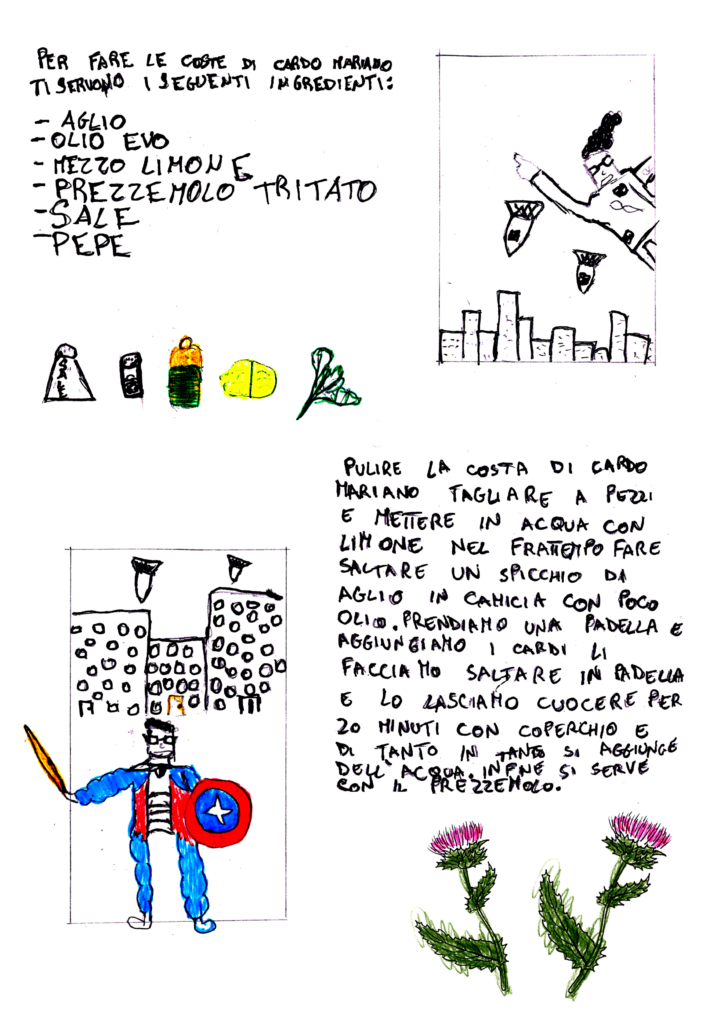 PER FARE LE COSTE DI CARDO MARIANO
TI SERVONO I SEGUENTI INGREDIENTI:
- AGLIO
- OLIO EVO
- MEZZO LIMONE
- PREZZEMOLO TRITATO
- SALE
- PEPE
PULIRE LA COSTA DI CARDO
MARIANO TAGLIARE A PEZZI
E METTERE IN ACQUA CON
LIMONE NEL FRATTEMPO FARE
SALTARE UN SPICCHIO DI
AGLIO IN CAMICIA CON POCO
OLIO. PRENDIAMO UNA PADELLA E
AGGIUNGIAMO I CARDI LI
FACCIAMO SALTARE IN PADELLA
E LO LASCIAMO CUOCERE PER
20 MINUTI CON COPERCHIO E
DI TANTO IN TANTO SI AGGIUNGE
DELL'ACQUA. INFINE SI SERVE
CON IL PREZZEMOLO.